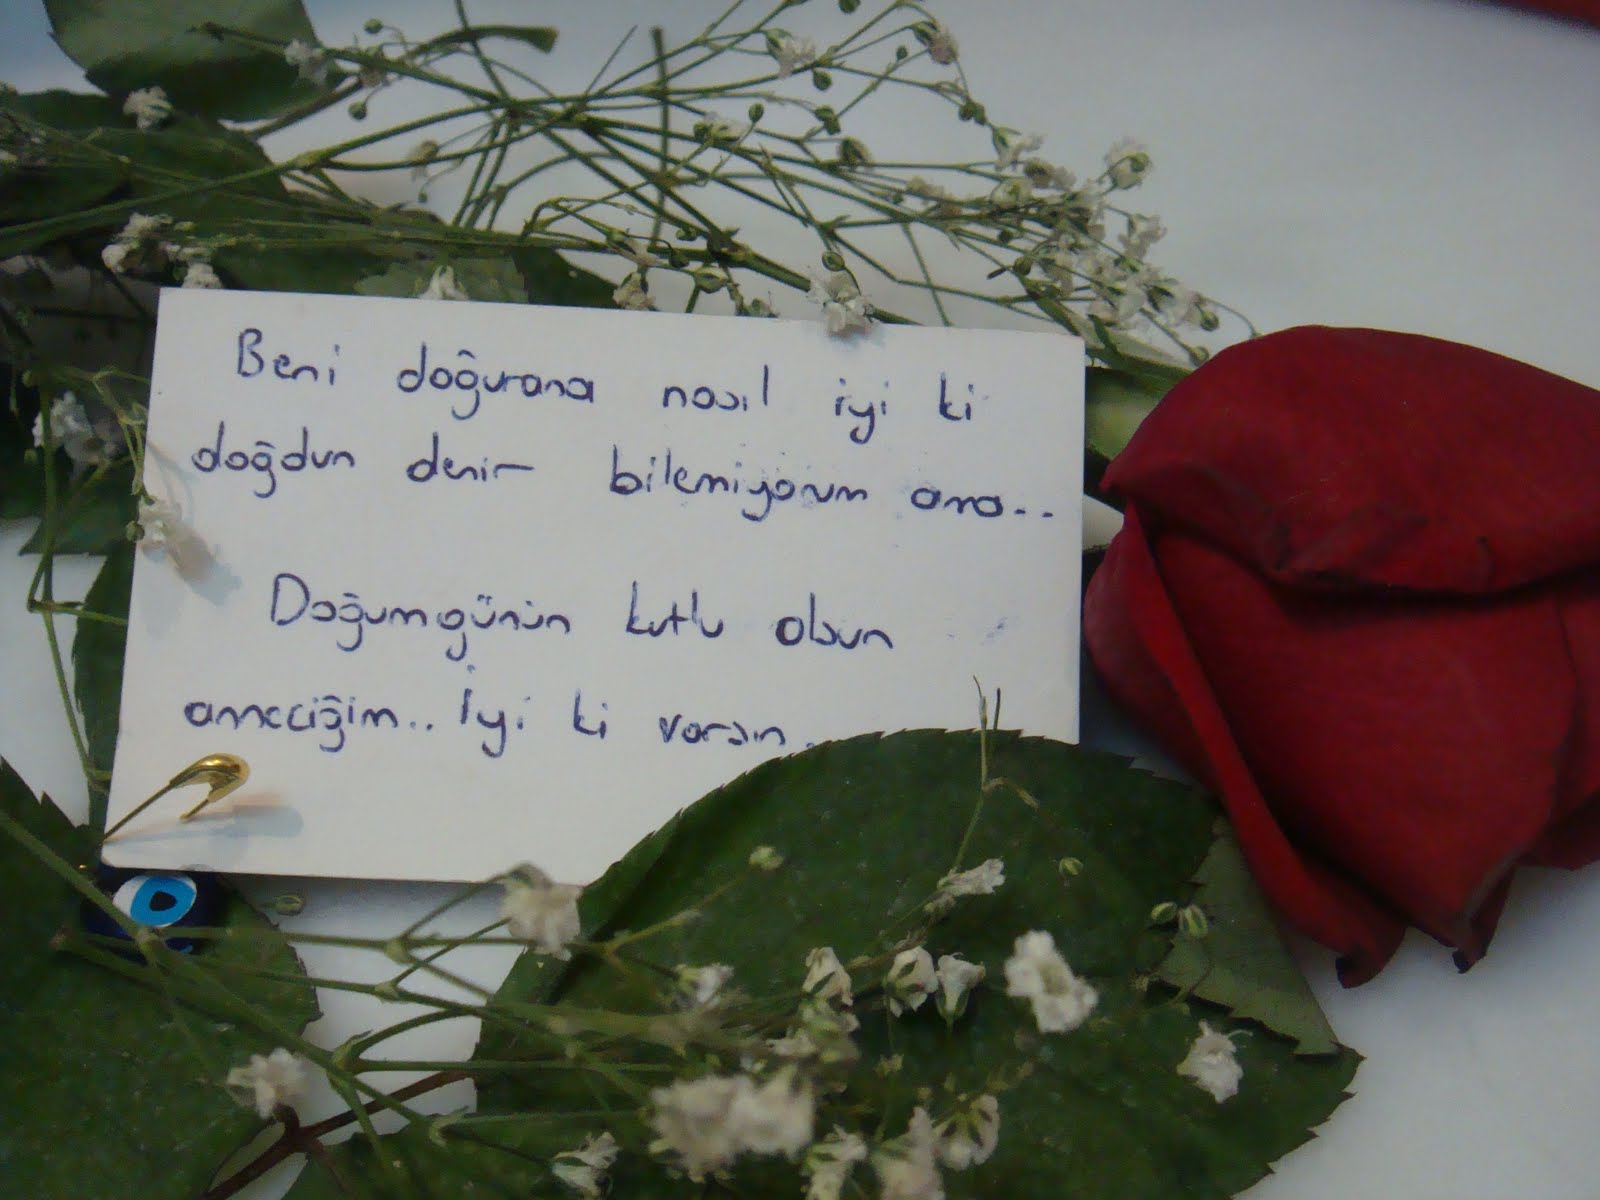 Beni doğurana nasıl iyi ki
doğdun denir bilemiyorum ama..
Doğumgünün kutlu olsun
anneciğim.. İyi ki varsın.